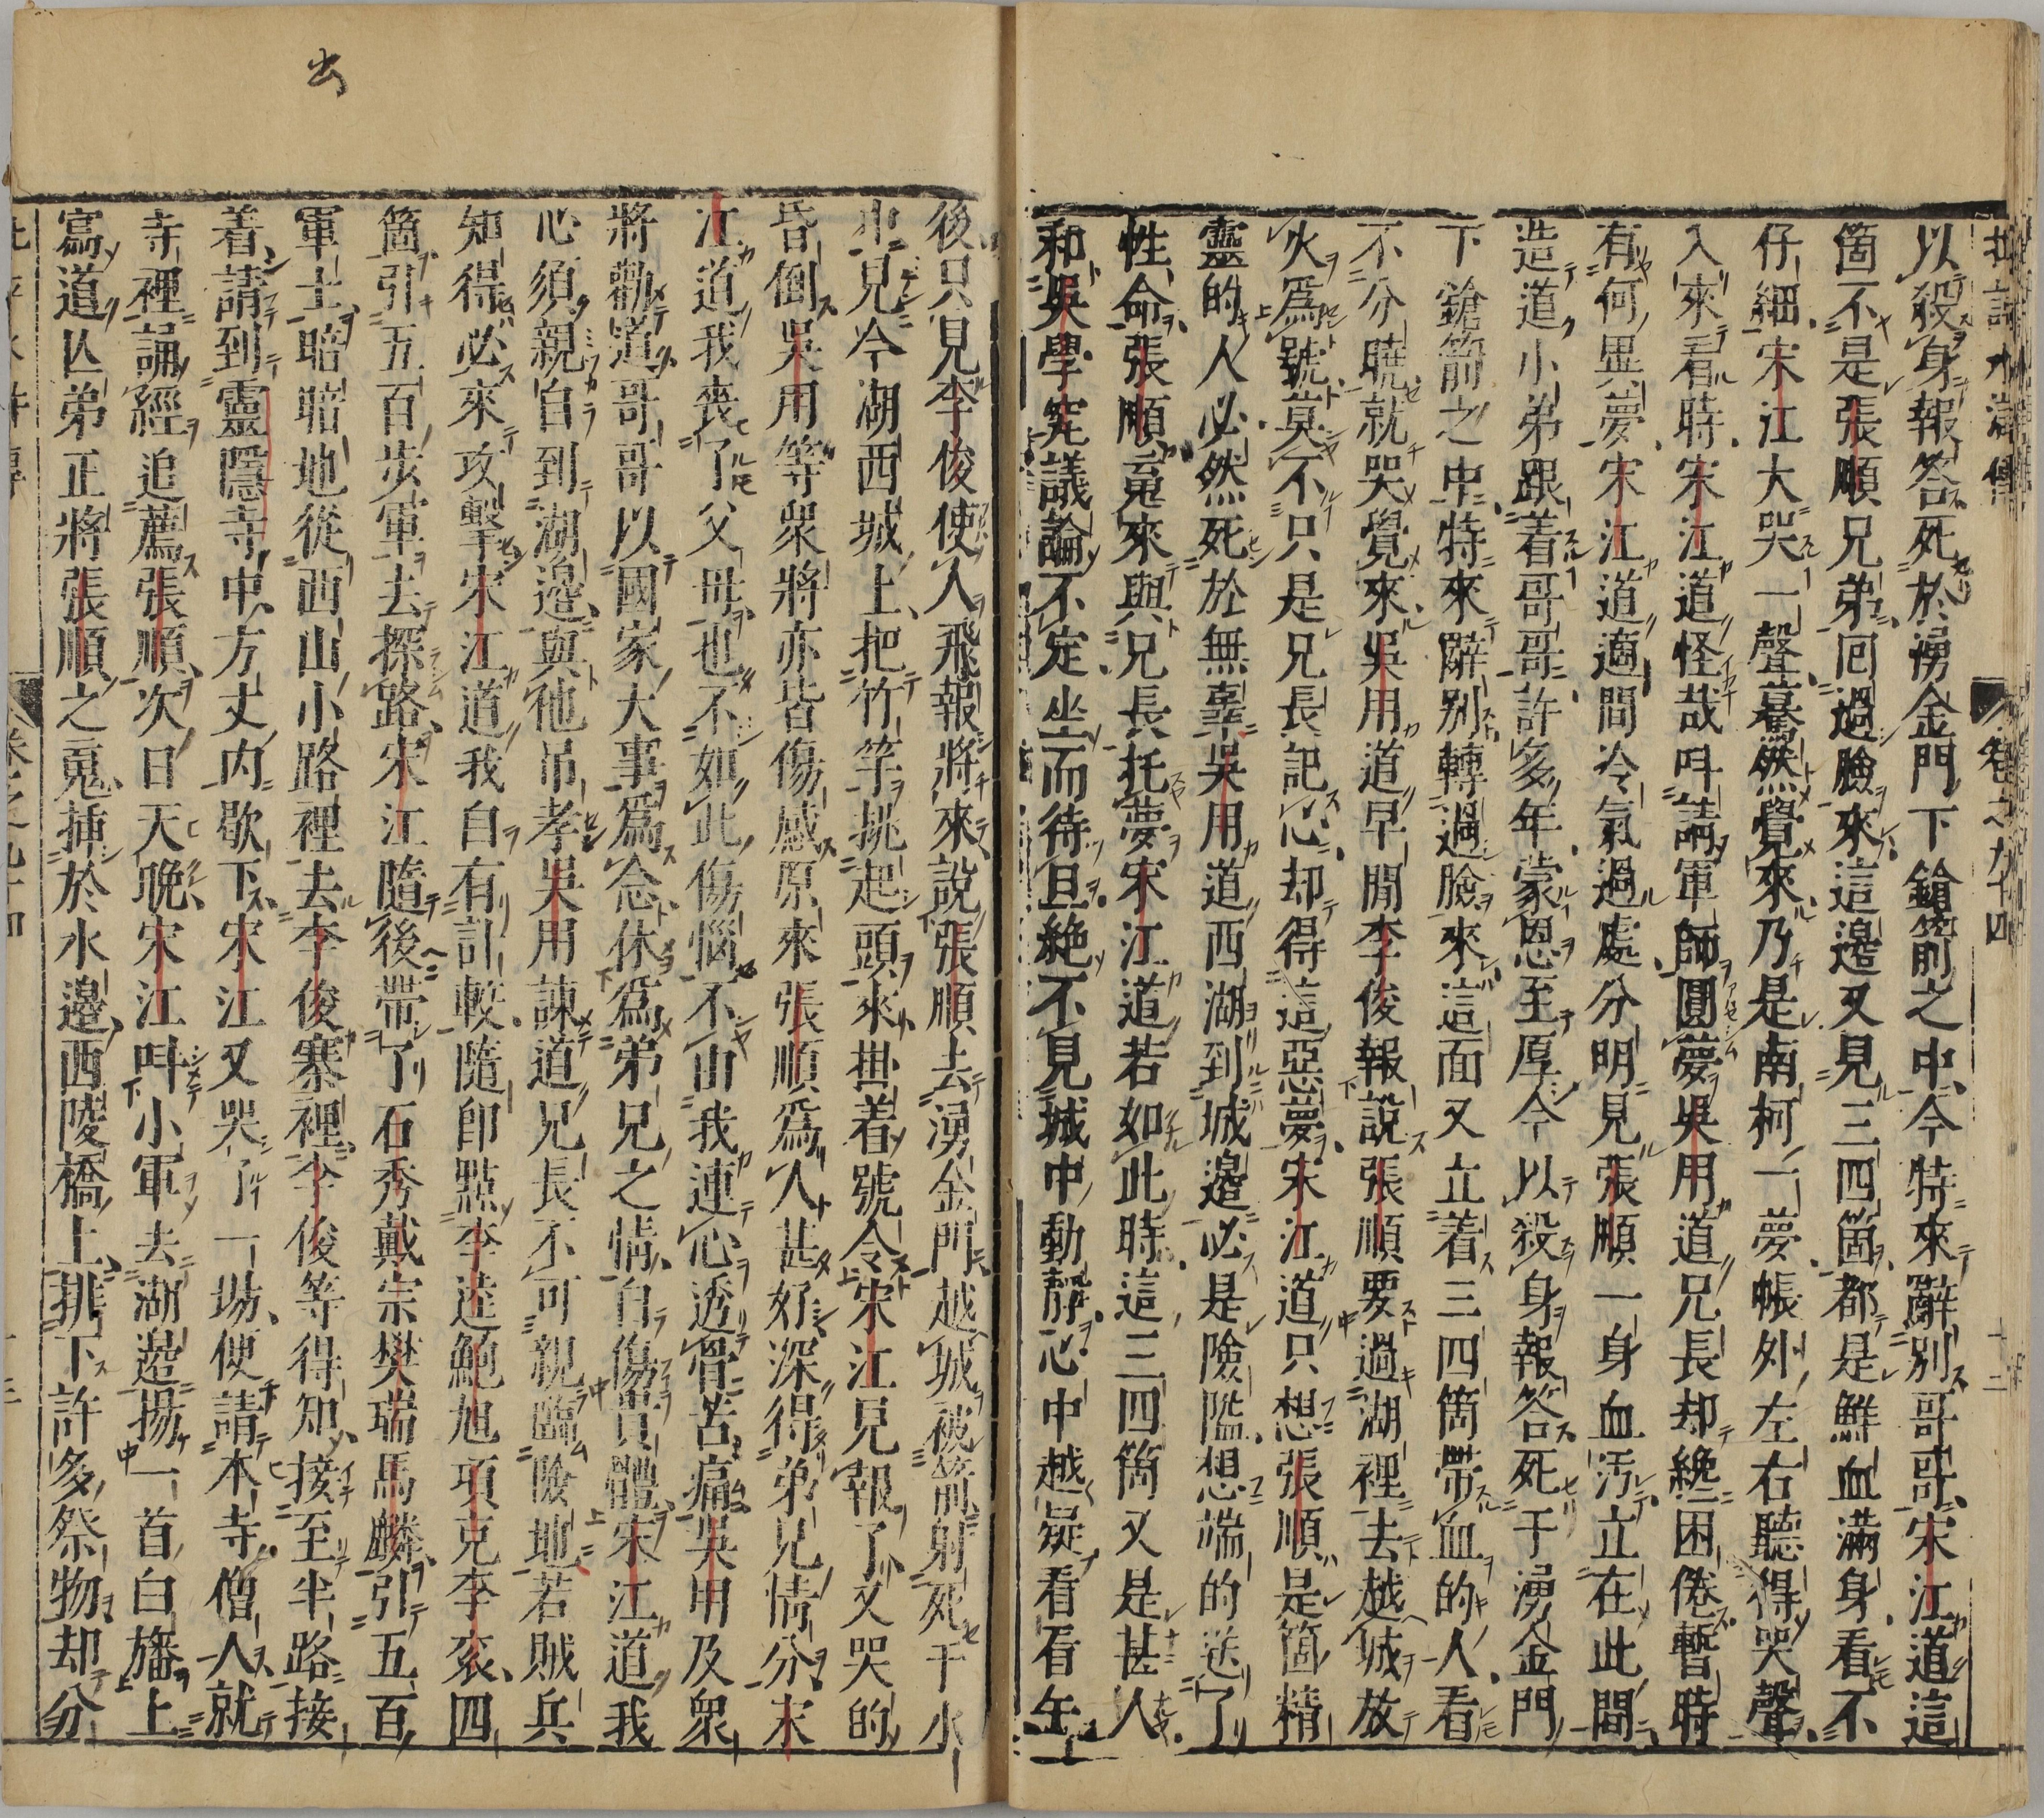 批評水滸傳 卷之九十四
以殺身報答死於湧金門下鎗箭之中今特來辭別哥哥宋江道這
箇不是張順兄弟回過臉來這邊又見三四箇都是鮮血滿身看不
仔細宋江大哭一聲驀然覺來乃是南柯一夢帳外左右聽得哭聲
入來看時宋江道怪哉呌請軍師圓夢吳用道兄長却纔困倦暫時
有何異夢宋江道適間冷氣過處分明見張順一身血汚立在此間
造道小弟跟着哥哥許多年蒙恩至厚今以殺身報答死于湧金門
下鎗箭之中特來辭别轉過臉來這面又立着三四箇帶血的人看
不分曉就哭覺來吳用道早間李俊報說張順要過湖裡去越城放
火爲號莫不只是兄長記心却得這惡夢宋江道只想張順是箇精
靈的人必然死於無辜吳用道西湖到城邉必是險隘想端的送了
性命張順䰟來與兄長托夢宋江道若如此時這三四箇又是甚人
和吳學究議論不定坐而待旦絶不見城中動靜心中越疑看看午
後只見李俊使人飛報將來說張順去湧金門越城被箭射死于水
中見今湖西城上把竹竿挑起頭來掛着號令宋江見報了又哭的
昏倒吳用等衆將亦皆傷感原來張順爲人甚好深得弟兄情分宋
江道我喪了父母也不如此傷惱不由我連心透骨苦痛吳用及衆
將勸道哥哥以國家大事爲念休爲弟兄之情自傷貴體宋江道我
心須親自到湖邉與他吊孝吳用諫道兄長不可親臨險地若賊兵
知得必來攻擊宋江道我自有計較隨即點李逵鮑旭項充李衮四
箇引五百步軍去探路宋江隨後帶了石秀戴宗樊瑞馬麟引五百
軍士暗暗地從西山小路裡去李俊寨裡李俊等得知接至半路接
着請到靈隱寺中方丈内歇下宋江又哭了一塲便請本寺僧人就
寺裡誦經追薦張順次日天晩宋江呌小軍去湖邉揚一首白旛上
寫道亡弟正將張順之䰟揷於水邉西陵橋上排下許多祭物却分